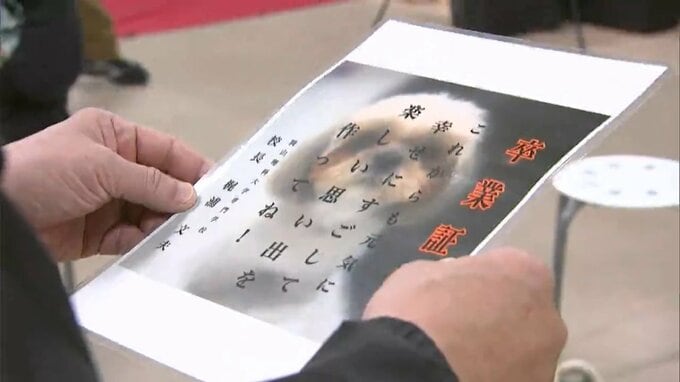 卒業証
これからも元気に
幸せにすごして
楽しい思い出を
作ってね!
校長 梶浦文夫